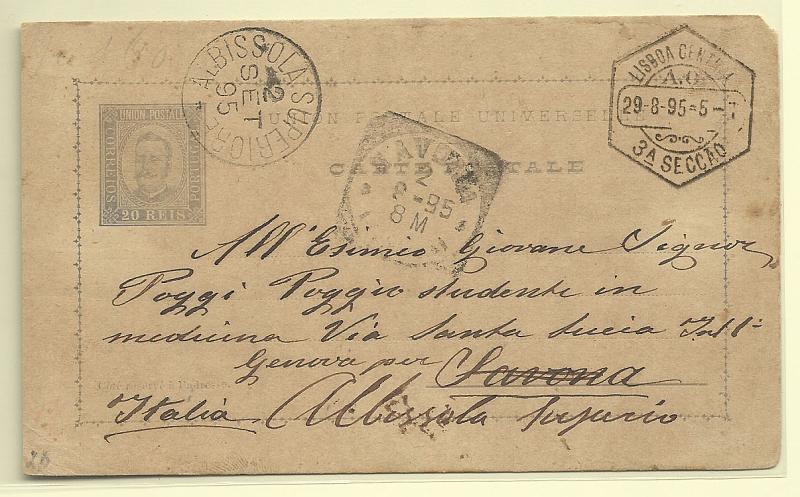 ALBISSOLA SUPERIORE
2
SET
95
LISBOA CENTRAL
A.C.
29-8-95=5-T
3A SECCÃO
UNION POSTALE UNIVERSELLE
CORREIOS
PORTUGAL
20 REIS
UNION POSTALE UNIVERSELLE
CARTE POSTALE
SAVONA
2
9-95
8M
All'Esimio Giovane Signor
Poggi Poggio studente in
medicina Via Santa Lucia Int 1º
Genova per Savona
Coté réservé à l'adresse.
Italia Albissola Superio